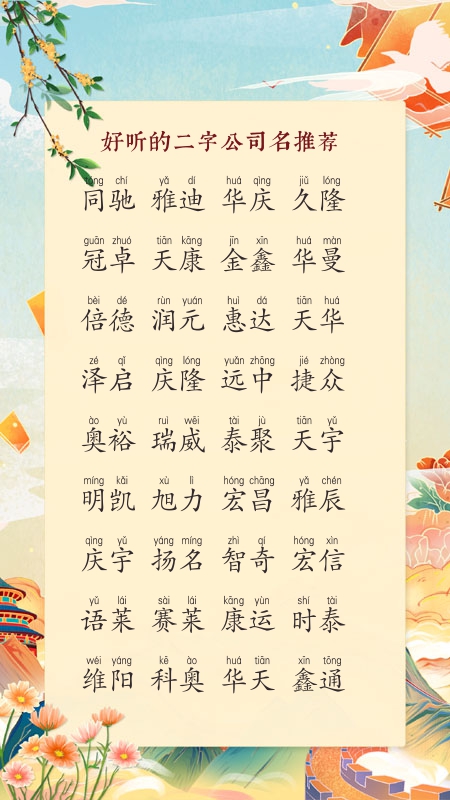 好听的二字公司名推荐
tóng chí yǎ dí huá qìng jiǔ lóng
同驰 雅迪 华庆 久隆
guān zhuó tiān kāng jīn xīn huá màn
冠卓 天康 金鑫 华曼
bèi dé rùn yuán huì dá tiān huá
倍德 润元 惠达 天华
zé qǐ qìng lóng yuǎn zhōng jié zhòng
泽启 庆隆 远中 捷众
ào yù ruì wēi tài jù tiān yǔ
奥裕 瑞威 泰聚 天宇
míng kǎi xù lì hóng chāng yǎ chén
明凯 旭力 宏昌 雅辰
qìng yǔ yáng míng zhì qí hóng xìn
庆宇 扬名 智奇 宏信
yǔ lái sài lái kāng yùn shí tài
语莱 赛莱 康运 时泰
wéi yáng kē ào huá tiān xīn tōng
维阳 科奥 华天 鑫通